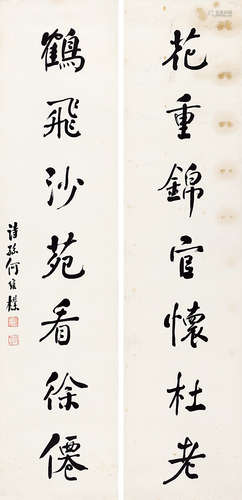 花重錦官懷杜老
鶴飛沙苑看徐僊
詩孫何維樸